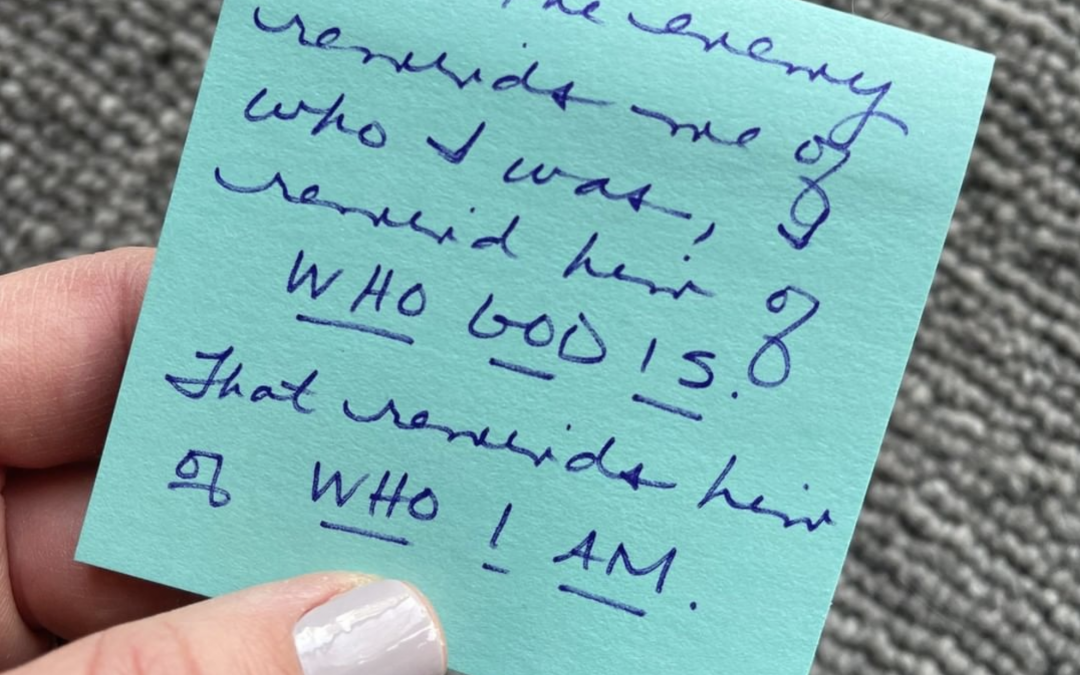 The enemy
reminds me of
who I was, I
remind him of
WHO GOD IS.
That reminds him
of WHO I AM.